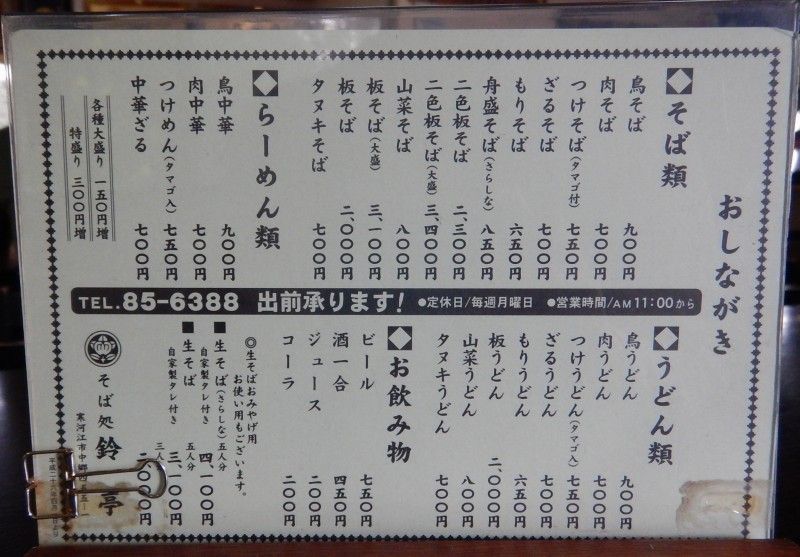 おしながき
◇そば類
鳥そば 九〇〇円
肉そば 七〇〇円
つけそば(タマゴ付) 七五〇円
ざるそば 七〇〇円
もりそば 六五〇円
舟盛そば(さらしな) 八五〇円
二色板そば 二、三〇〇円
二色板そば(大盛) 三、四〇〇円
山菜そば 八〇〇円
板そば(大盛) 三、一〇〇円
板そば 二、〇〇〇円
タヌキそば 七〇〇円
◇らーめん類
鳥中華 九〇〇円
肉中華 七〇〇円
つけめん(タマゴ入) 七五〇円
中華ざる 七〇〇円
各種大盛り 一五〇円増
特盛り 三〇〇円増
TEL.85-6388 出前承ります! ●定休日/毎週月曜日 ●営業時間/AM11:00から
◇うどん類
鳥うどん 九〇〇円
肉うどん 七〇〇円
つけうどん(タマゴ入) 七五〇円
ざるうどん 七〇〇円
もりうどん 六五〇円
板うどん 二、〇〇〇円
山菜うどん 八〇〇円
タヌキうどん 七〇〇円
◇お飲み物
ビール 七五〇円
酒一合 四五〇円
ジュース 二〇〇円
コーラ 二〇〇円
◎生そばおみやげ用
お使い用もございます。
■生そば(さらしな)五人分 四、一〇〇円
自家製タレ付き
■生そば 五人分 三、一〇〇円
自家製タレ付き
三人 二〇〇〇円
そば処 鈴 亭
寒河江市中郷
平成二十六年四月